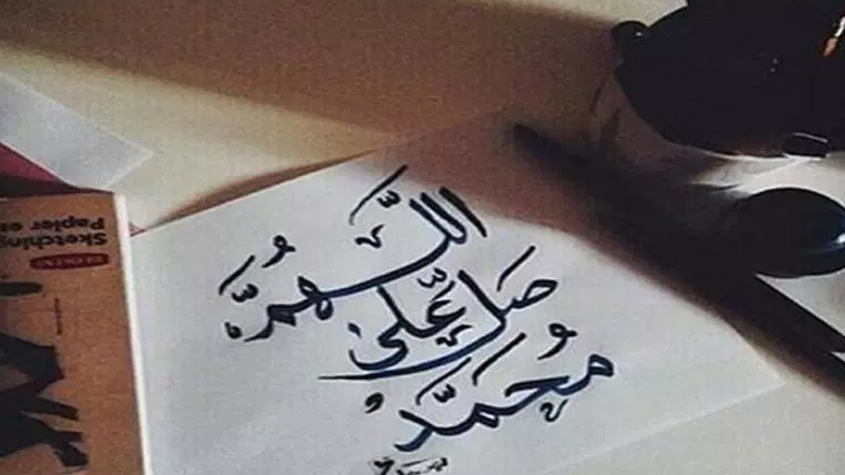 اللَّهُمَّ
صَلِّ عَلَى
مُحَمَّد
Sketching
Papier